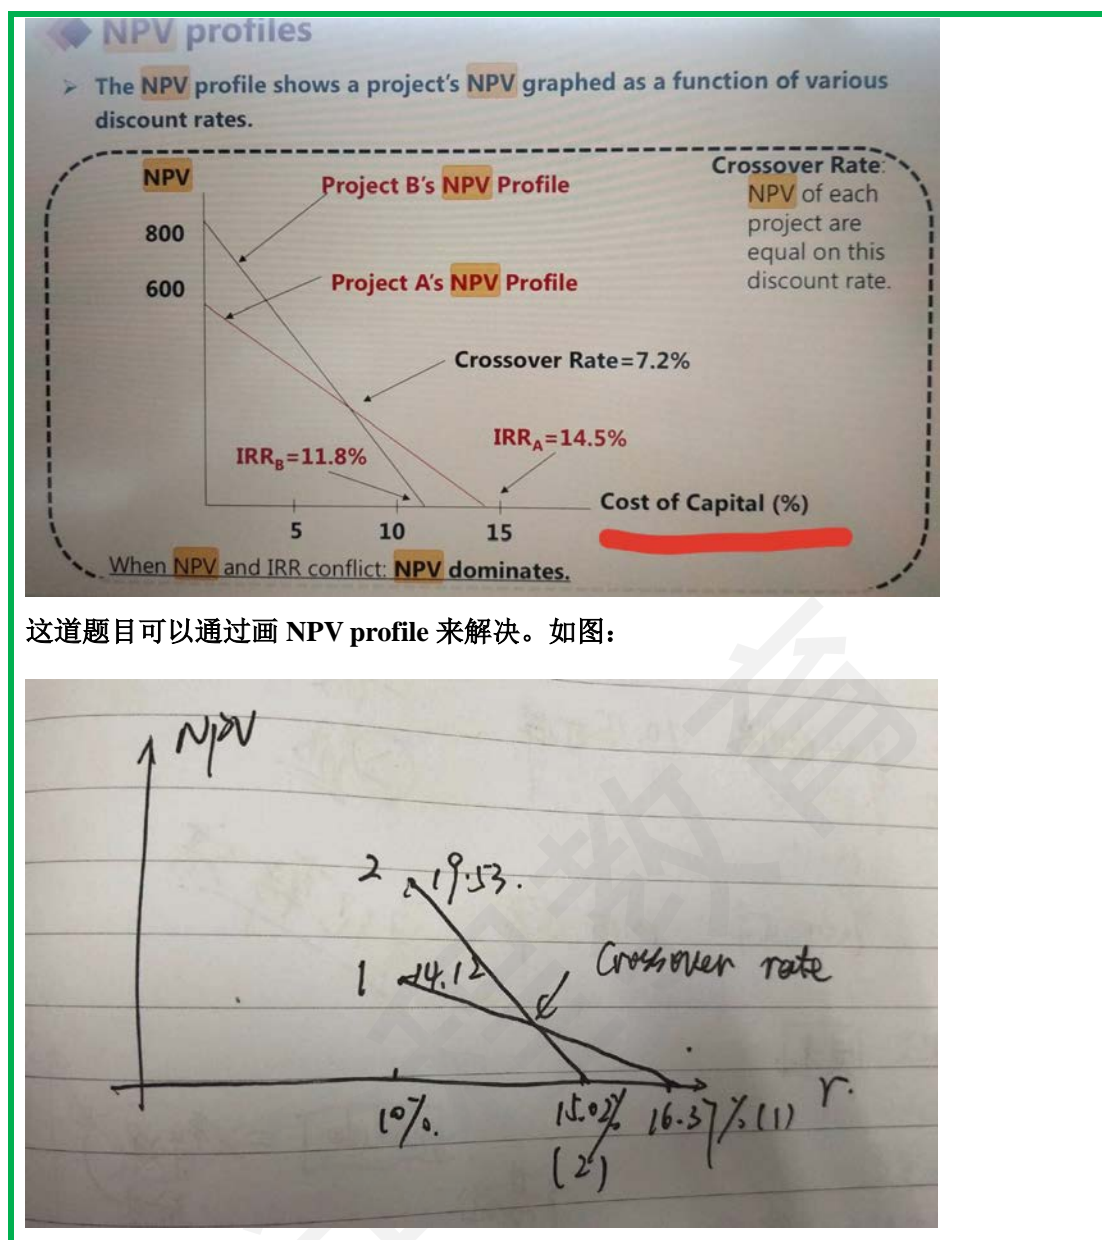 NPV profiles
➢ The NPV profile shows a project's NPV graphed as a function of various
discount rates.
NPV
800
600
Project B's NPV Profile
Project A's NPV Profile
Crossover Rate:
NPV of each
project are
equal on this
discount rate.
Crossover Rate=7.2%
IRR_A=14.5%
IRR_B=11.8%
Cost of Capital (%)
5 10 15
When NPV and IRR conflict: NPV dominates.
这道题目可以通过画 NPV profile 来解决。如图：
NPV
2 19.53.
1 14.12
Crossover rate
10%. 15.02% 16.37%(1) r.
(2)
教育